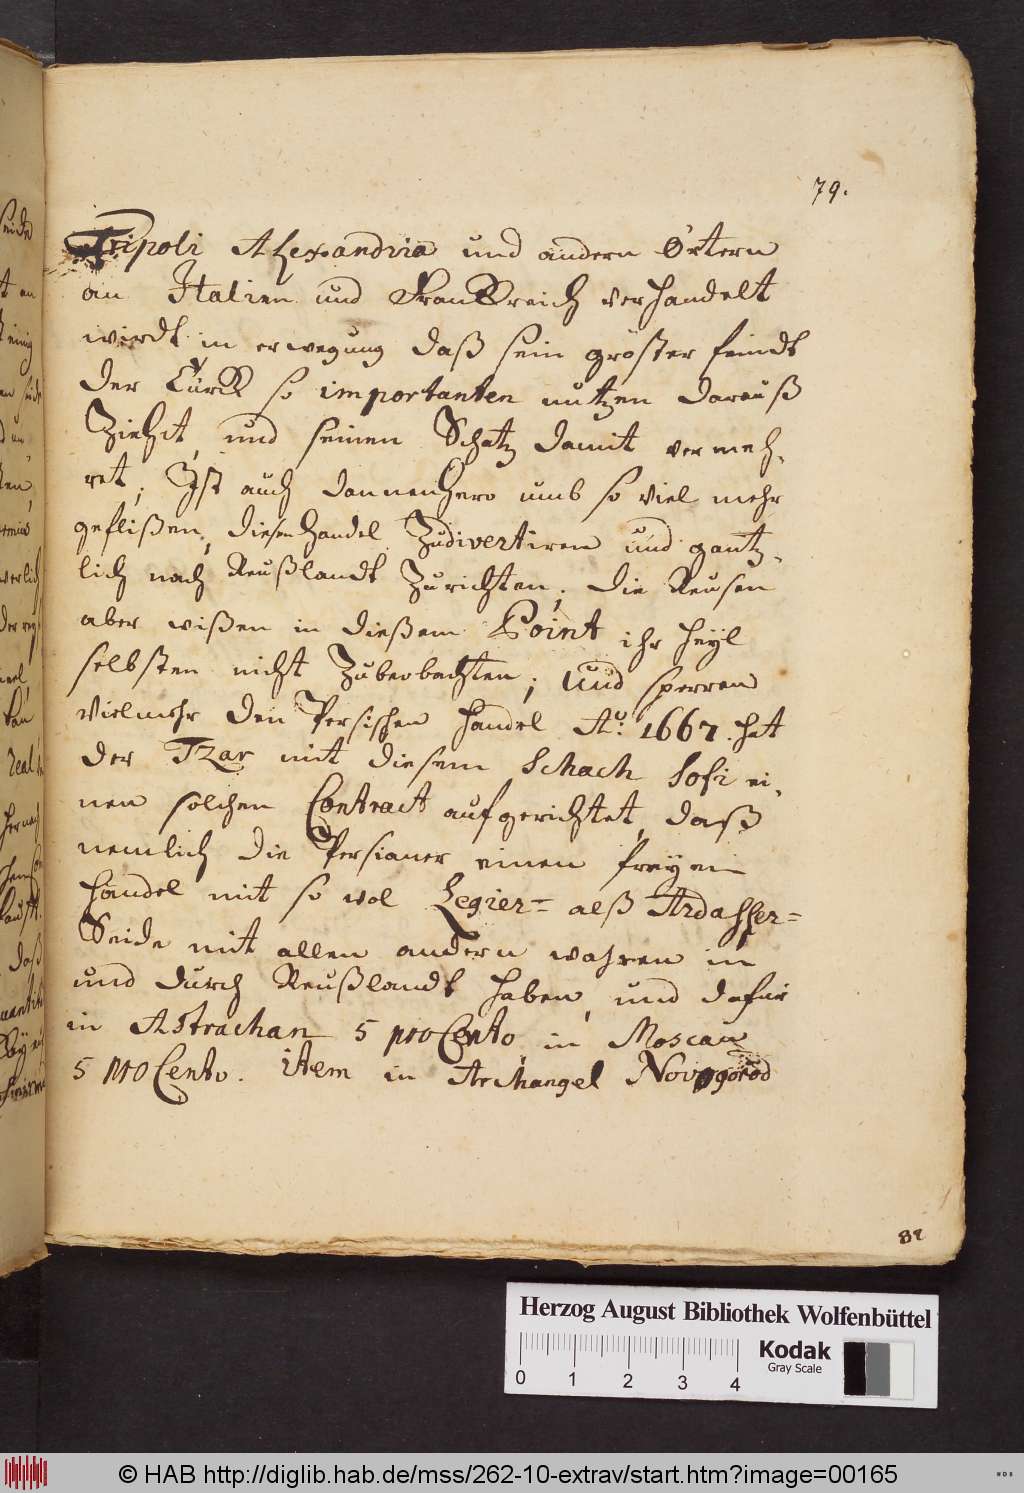 79.
Tripoli Alexandria und andern Örtern
an Italien und Franckreich verhandelt
wirdt in erwegung daß sein gröster feindt
der Türck so importanten nutzen darauß
Ziehet, und seinen Schatz damit vermeh,
ret; Ist auch dannenhero umb so viel mehr
geflißen, diesen handel Zudivertiren und gäntz,
lich nach Reußlandt Zurichten, die Reusen
aber wißen in dießem Point ihr heÿl
selbsten nicht Zubeobachten; und sperren
vielmehr den Persischen handel Aº: 1667. hat
der Tzar mit diesem Schach Sofi ei,
nen solchen Contract aufgerichtet, daß
nemlich die Persianer einen freÿen
handel mit so wol Legier= alß Ardasser=
Seide mit allen andern wahren in
und durch Reußlandt haben, und dafür
in Astrachan 5 pro Cento, in Moscau
5 pro Cento. item in Archangel Novogorod
82
Herzog August Bibliothek Wolfenbüttel
Kodak
Gray Scale
0 1 2 3 4
© HAB http://diglib.hab.de/mss/262-10-extrav/start.htm?image=00165